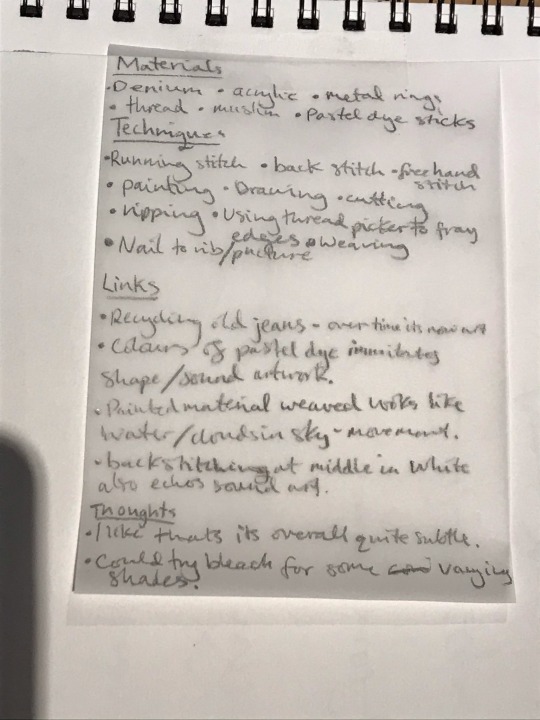 Materials
•Denium • acrylic • metal rings
• thread • muslin • Pastel dye sticks
Techniques
•Running stitch • back stitch • freehand stitch
• painting • Drawing • cutting
• ripping • Using thread picker to fray edges • weaving
• Nail to rib/puncture
Links
•Recycling old jeans - over time its now art
• Colours of pastel dye immitates
shape/sound artwork.
• Painted material weaved looks like
water/clouds in sky - movement.
• backstitching at middle in white
also echos sound art.
Thoughts
• I like thats its overall quite subtle.
• Could try bleach for some varying
shades.